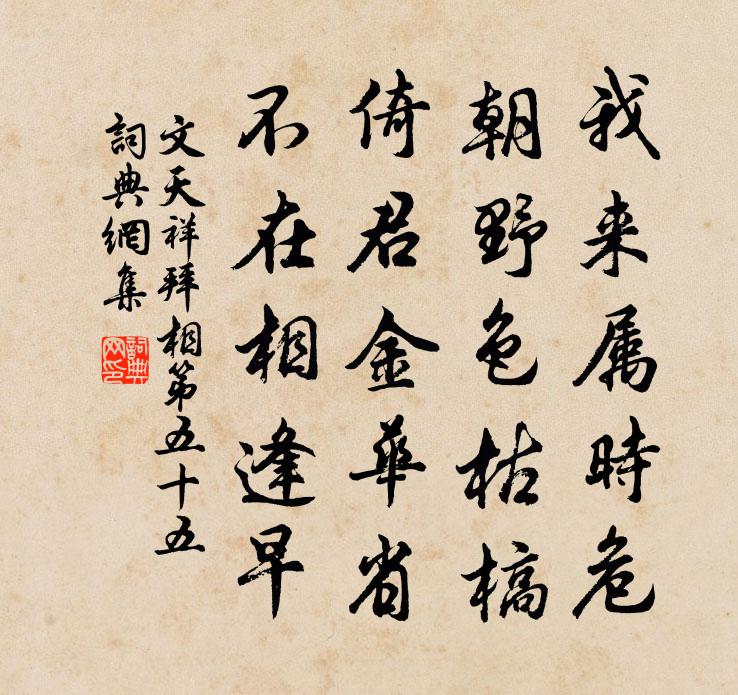 我来属時危
朝野色枯槁
倚君金華省
不在相逢早
文天祥拜相第五十五
詞典網集
詞典網印